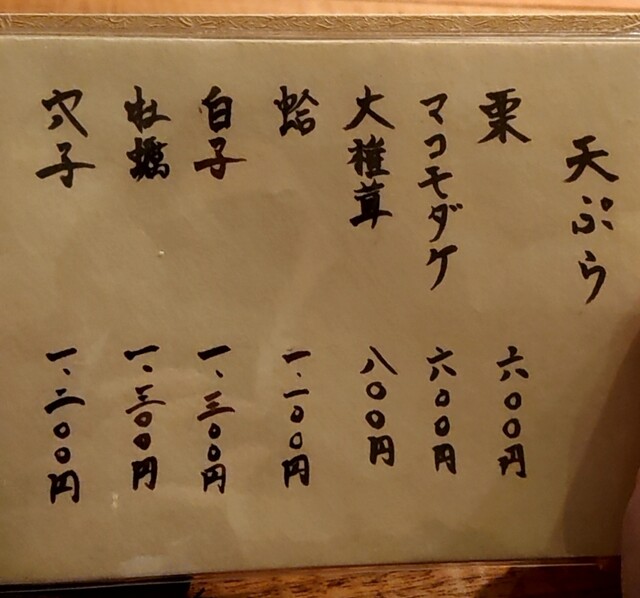 天ぷら
栗 六〇〇円
マコモダケ 六〇〇円
大椎茸 八〇〇円
蛤 一、一〇〇円
白子 一、三〇〇円
牡蠣 一、三〇〇円
穴子 一、二〇〇円